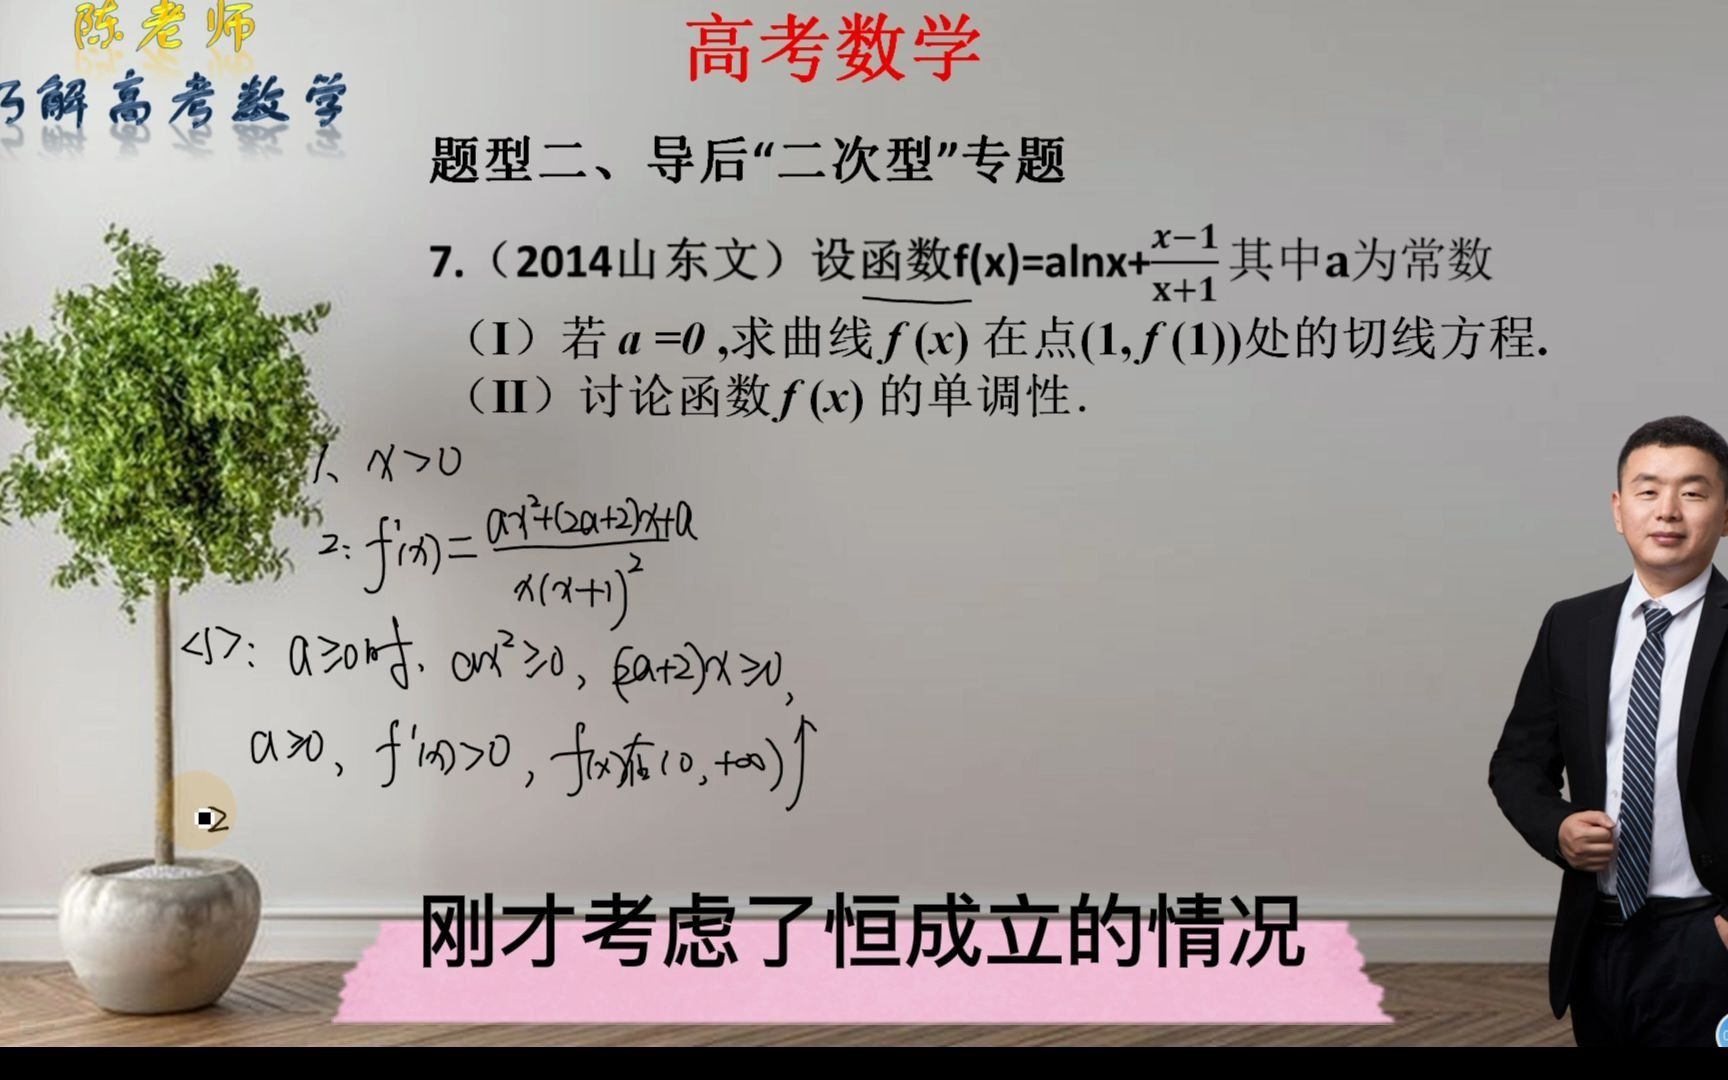 陈老师
巧解高考数学
高考数学
题型二、导后“二次型”专题
7.（2014山东文）设函数f(x)=alnx+\frac{x-1}{x+1} 其中a为常数
（I）若 a =0 ,求曲线 f (x) 在点(1, f (1))处的切线方程.
（II）讨论函数 f (x) 的单调性.
1、x>0
2: f'(x)=\frac{ax²+(2a+2)x+a}{x(x+1)²}
<1>: a≥0时、ax²≥0, (2a+2)x≥0,
a≥0, f'(x)>0, f(x)在(0,+∞)↑
2
刚才考虑了恒成立的情况